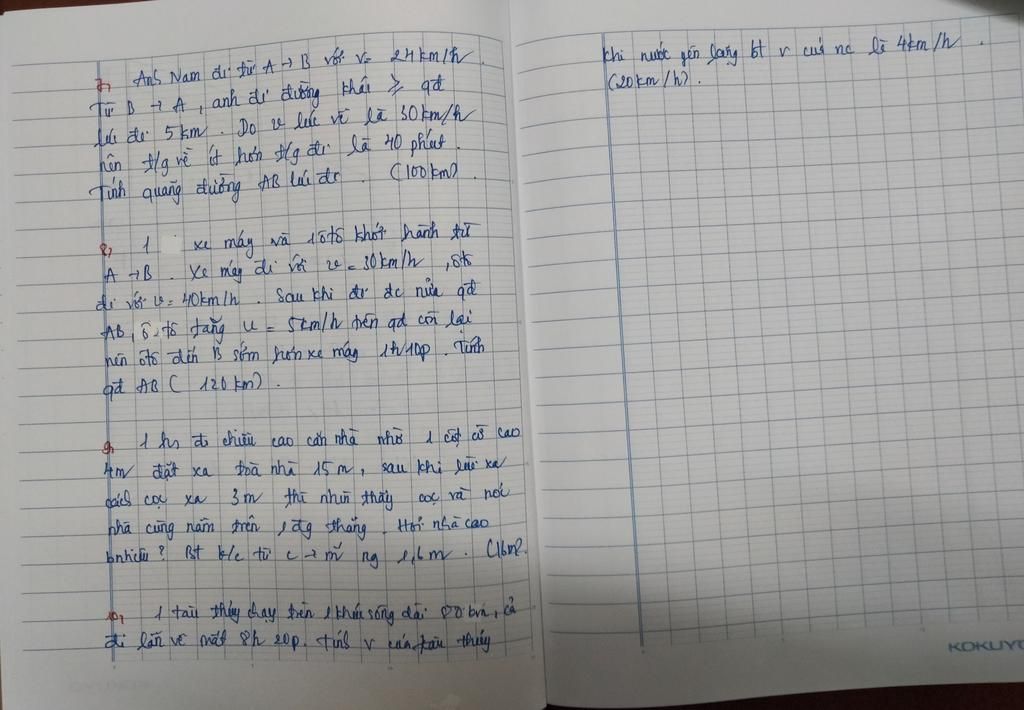 7, Anh Nam đi từ A → B với v= 24km/h
Từ B → A, anh đi đường khác ≥ qđ
lúc đi 5km. Do v lúc về là 30km/h
nên t/g về ít hơn t/g đi là 40 phút.
Tính quãng đường AB lúc đi. (100km).
8, 1 xe máy và 1 ôtô khởi hành từ
A → B. Xe máy đi với v = 30km/h, ôtô
đi với v= 40km/h. Sau khi đi đc nửa qđ
AB, ô tô tăng v = 5km/h trên qđ còn lại
nên ôtô đến B sớm hơn xe máy 1h10p. Tính
qđ AB (120km).
9, 1 hs đo chiều cao căn nhà nhờ 1 cột cờ cao
4m đặt xa toà nhà 15m, sau khi lùi xa
cách cọc xa 3m thì nhìn thấy cọc và nóc
nhà cùng nằm trên 1 đg thẳng. Hỏi nhà cao
bnhiêu? Bt k/c từ c → m ng 1,6m. (16m).
10, 1 tàu thủy chạy trên 1 khúc sông dài 80km, cả
đi lẫn về mất 8h 20p. Tính v của tàu thủy
khi nước yên lặng bt v của nc là 4km/h.
(20km/h).
KOKUYO